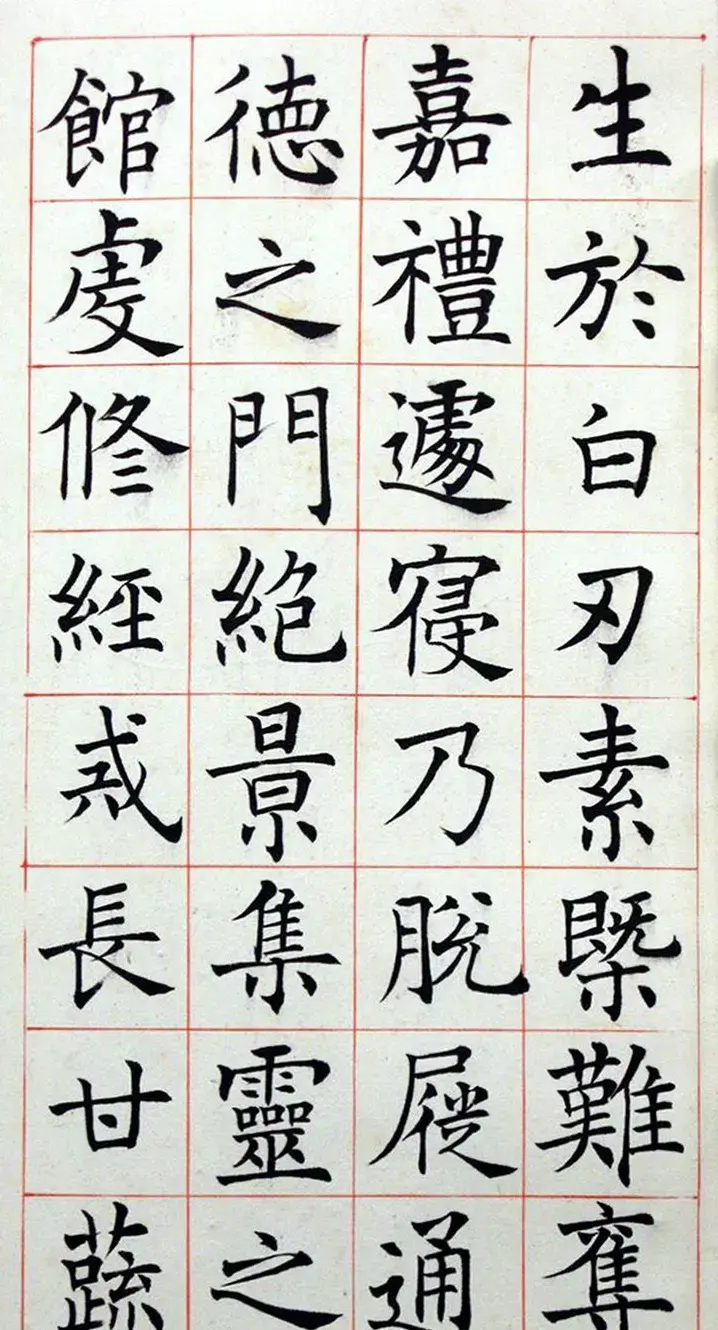 生於白刃素槩難奪
嘉禮遽寑乃脱屣通
徳之門絶景集靈之
館虔修經戒長甘蔬